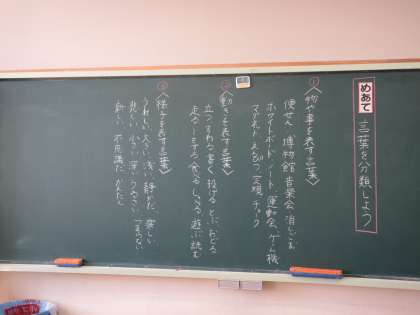 めあて 言葉を分類しよう
① 〈物や事を表す言葉〉
便せん 博物館 音楽会 消しごむ
ホワイトボード ノート 運動会 ゲーム機
マグネット えんぴつ 黒板 チョーク
② 〈動きを表す言葉〉
立つ すわる 書く 投げる とぶ おどる
走る 食べる しゃべる 遊ぶ 読む
③ 〈様子を表す言葉〉
うれしい 大きい 浅い 静かだ 楽しい
悲しい 小さい 深い うるさい つまらない
新しい 不思議だ